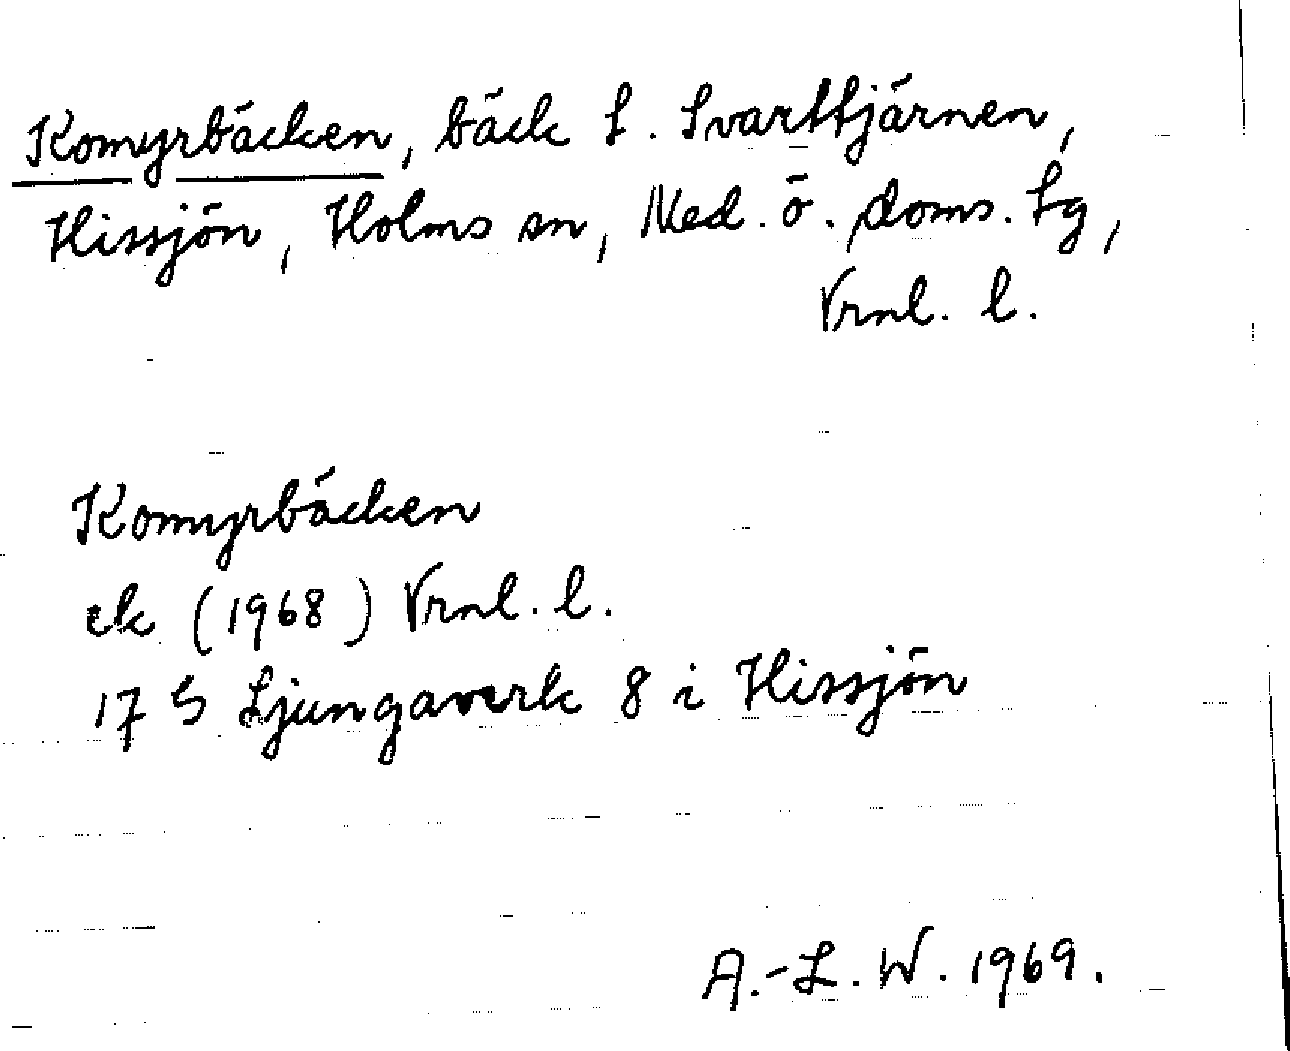 Komyrbäcken, bäck t. Svarttjärnen,
Hissjön, Holms sn, Med. ö. doms. tg,
Vrnl. l.
Komyrbäcken
ek (1968) Vrnl. l.
17 G Ljungaverk 8 i Hissjön
A.-L. W. 1969.